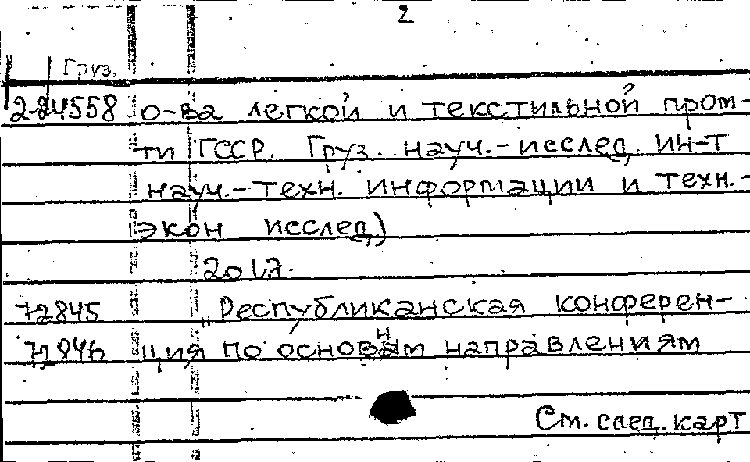 2
Груз.
2-84558 о-ва легкой и текстильной пром-
ти ГССР. Груз. науч.-исслед. ин-т
науч.-техн. информации и техн.-
экон исслед)
201д.
72845 „Республиканская конферен-
71846 ция по основным направлениям
См. след. карт